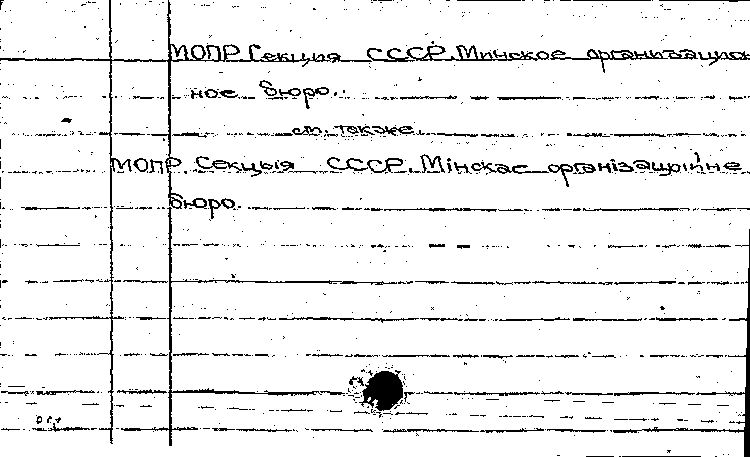 МОПР. Секция СССР. Минское организацион
ное бюро.
см. также.
МОПР. Секцыя СССР. Мінскае організацыйне
бюро.